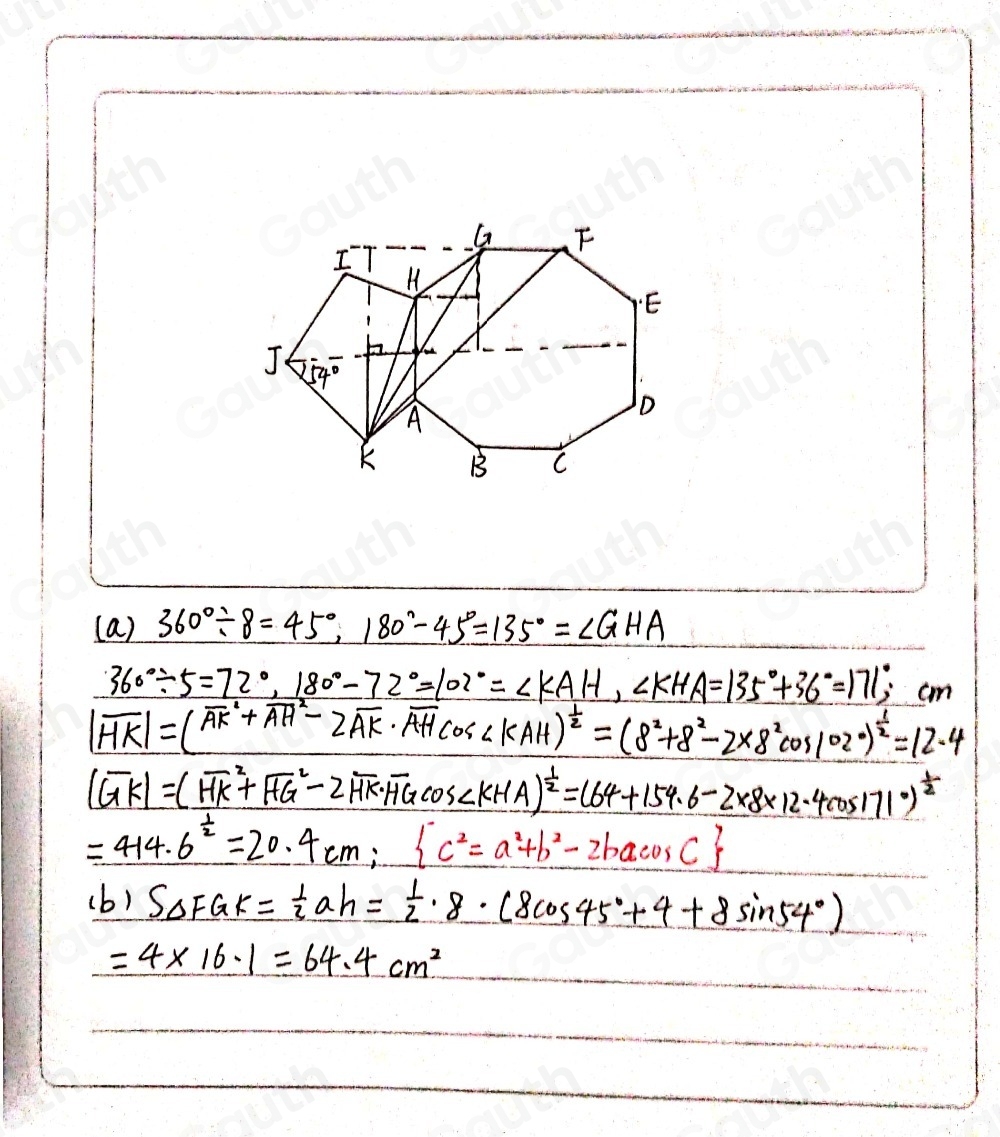 G F
I T
H
E
J 54°
A D
K B C
(a) 360°÷8=45°, 180°-45°=135°=∠GHA
360°÷5=72°, 180°-72°=102°=∠KAH, ∠KHA=135°+36°=171°; cm
|HK|=(AK²+AH²-2AK·AHcos∠KAH)^½=(8²+8²-2×8²cos102°)^½=12.4
|GK|=(HK²+HG²-2HK·HGcos∠KHA)^½=(64+154.6-2×8×12.4cos171°)^½
=414.6^½=20.4cm; {c²=a²+b²-2bacosC}
(b) S△FGK=½ah=½·8·(8cos45°+4+8sin54°)
=4×16.1=64.4cm²
Gauth